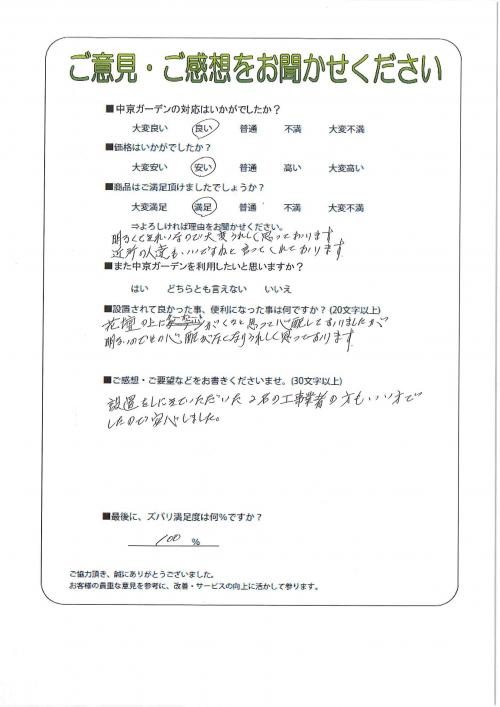 ご意見・ご感想をお聞かせください
■中京ガーデンの対応はいかがでしたか？
大変良い 良い 普通 不満 大変不満
■価格はいかがでしたか？
大変安い 安い 普通 高い 大変高い
■商品はご満足頂けましたでしょうか？
大変満足 満足 普通 不満 大変不満
⇒よろしければ理由をお聞かせください。
明るくてきれいなので大変うれしく思っております
近所の人達も、いいですねと言ってくれております
■また中京ガーデンを利用したいと思いますか？
はい どちらとも言えない いいえ
■設置されて良かった事、便利になった事は何ですか？（20文字以上）
花壇の上に がくるかと思って心配しておりましたが
明るいのでその心配がなくなりうれしく思っております
■ご感想・ご要望などをお書きくださいませ。（30文字以上）
設置をしに来ていただいた2名の工事業者の方も、いい方で
したので安心しました。
■最後に、ズバリ満足度は何％ですか？
100 ％
ご協力頂き、誠にありがとうございました。
お客様の貴重な意見を参考に、改善・サービスの向上に活かして参ります。